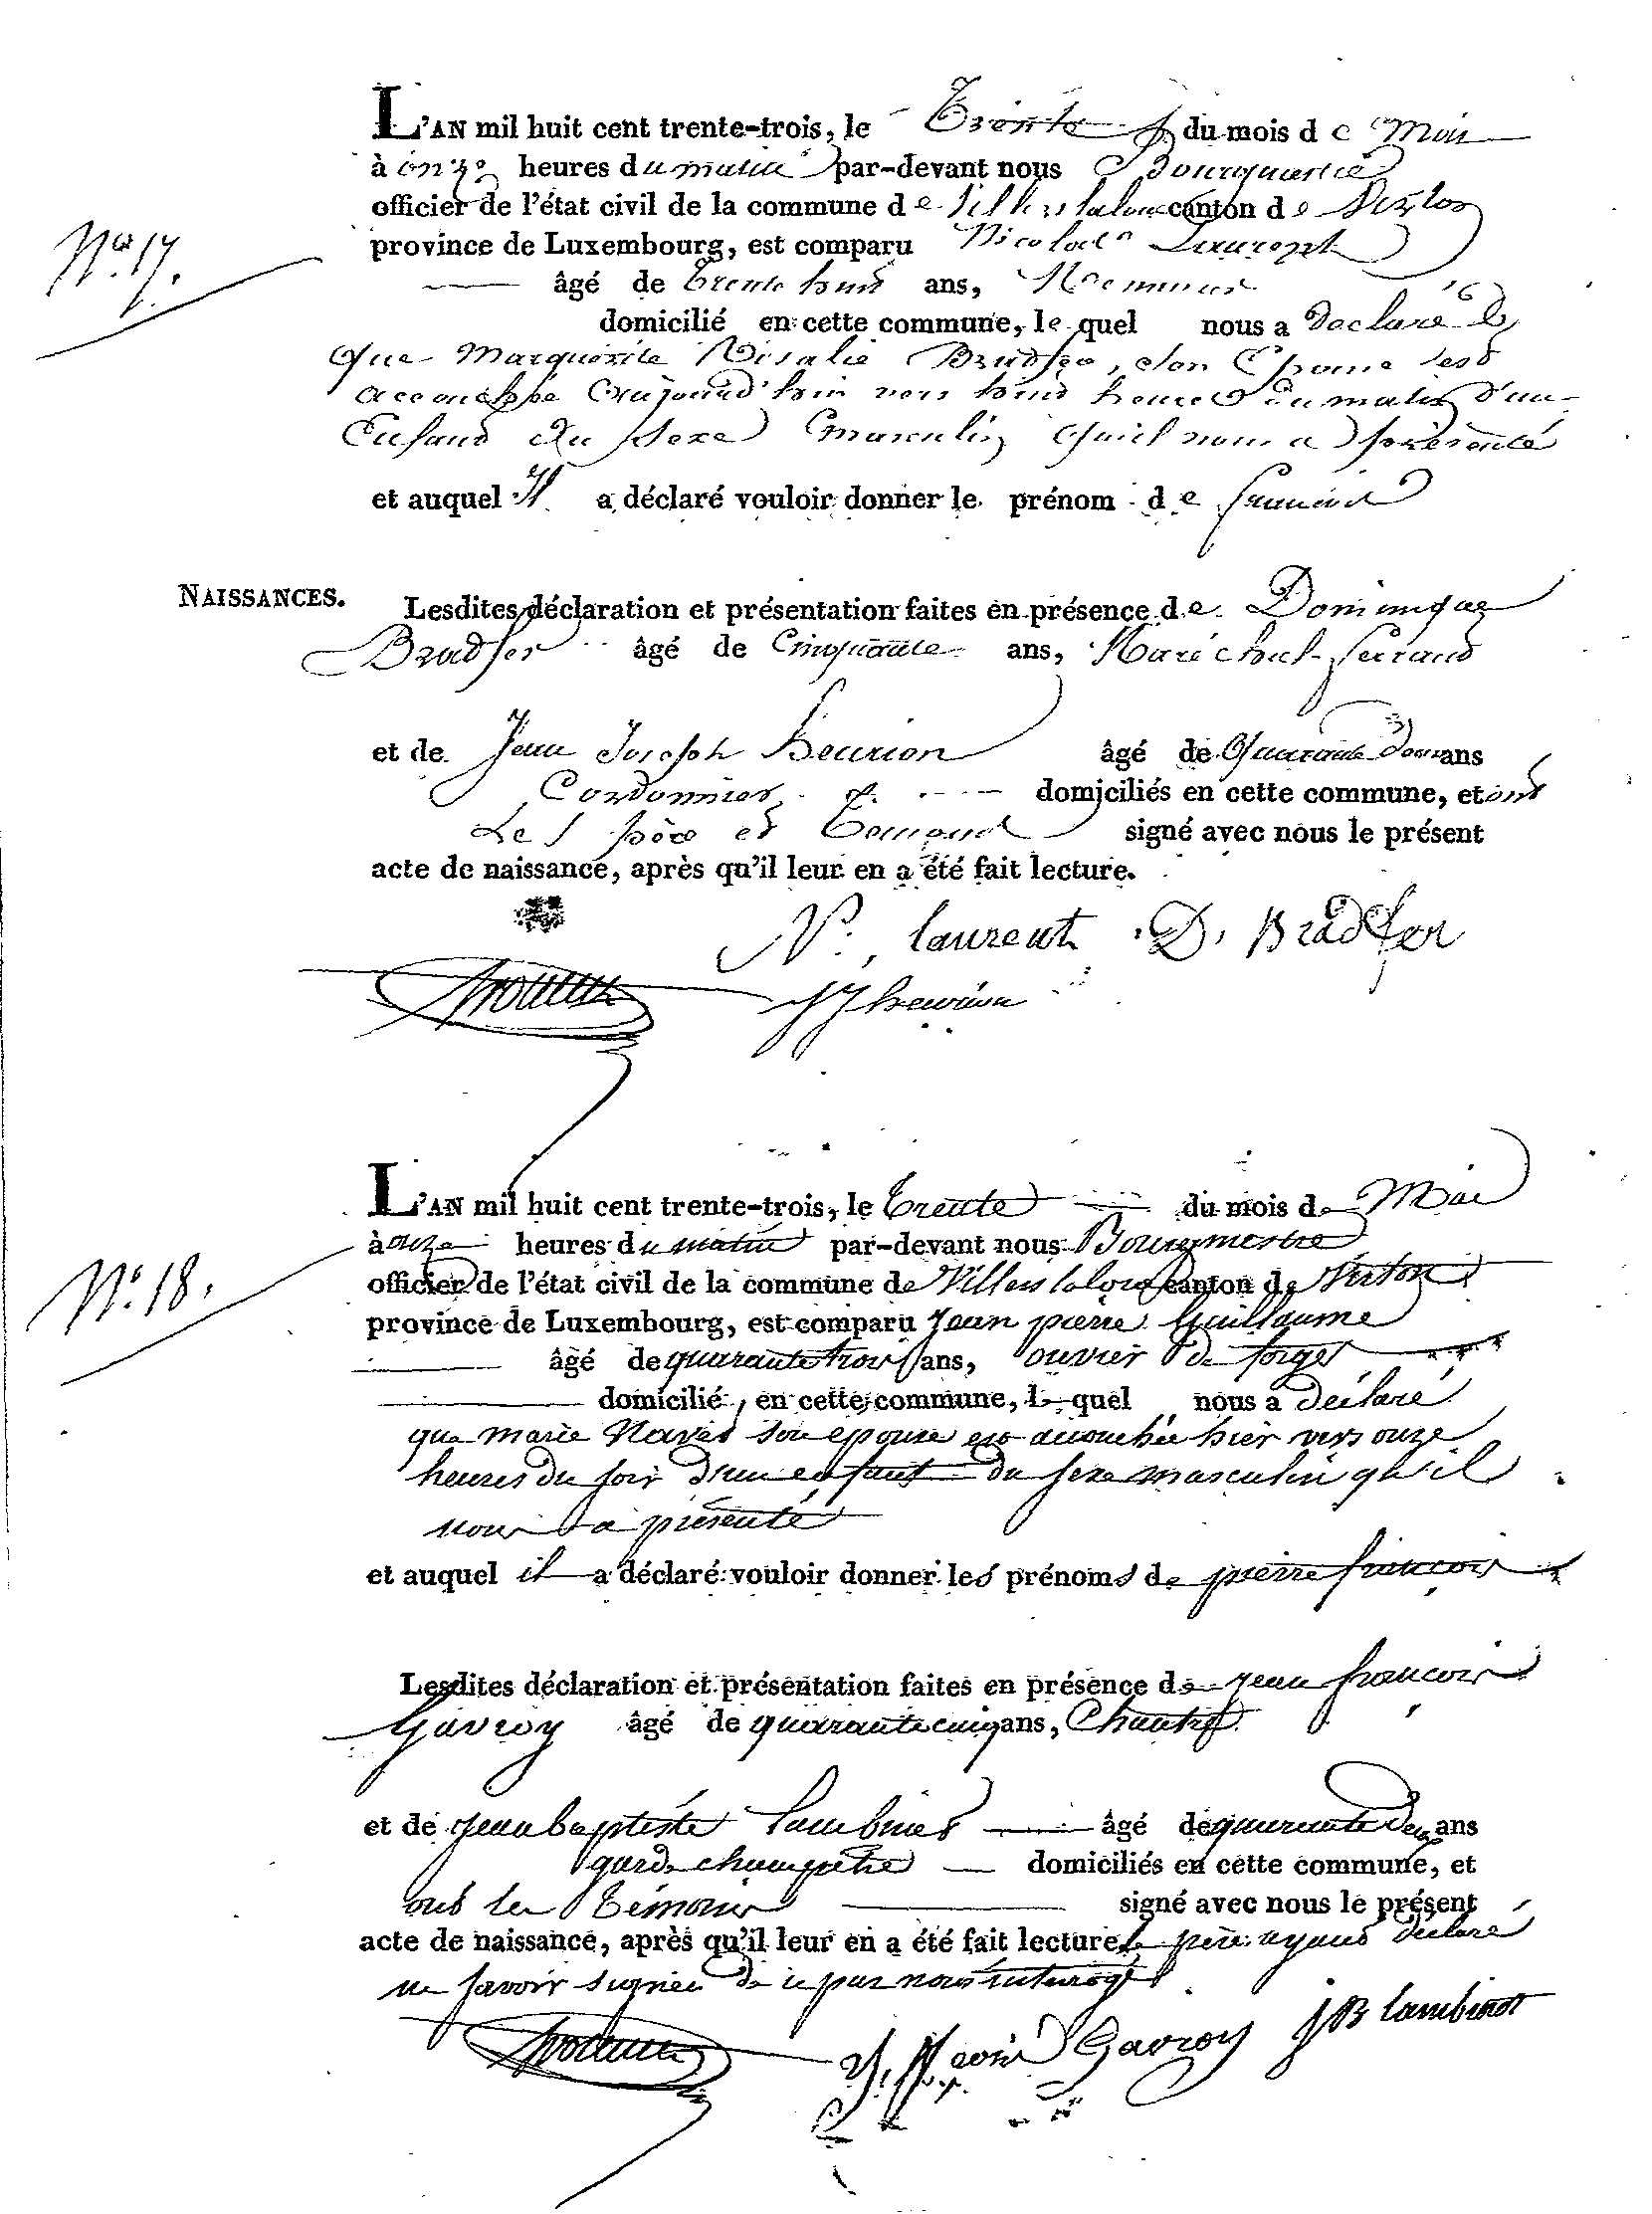 L'AN mil huit cent trente-trois, le Trente du mois de Mai
à onze heures du matin par-devant nous Bourguemestre
officier de l'état civil de la commune de Villers laloue canton de Virton
N° 17.
province de Luxembourg, est comparu Nicolas Laurent
âgé de trente huit ans,
domicilié en cette commune, le quel nous a déclaré
que Marguerite Rosalie Bradfer, son Epouse est
accouchée aujourd'hui vers huit heures du matin d'un
Enfant du sexe masculin qu'il nous a présenté
et auquel Il a déclaré vouloir donner le prénom de
NAISSANCES.
Lesdites déclaration et présentation faites en présence de Dominique
Bradfer âgé de Cinquante ans, Maréchal ferrant
et de Jean Joseph henrion âgé de Quarante deux ans
Cordonnier domiciliés en cette commune, et ont
Les père et Temoins signé avec nous le présent
acte de naissance, après qu'il leur en a été fait lecture.
N. laurent D. Bradfer
JJ henrion
L'AN mil huit cent trente-trois, le trente du mois de Mai
à onze heures du matin par-devant nous Bourgmestre
N° 18.
officier de l'état civil de la commune de Villers laloue canton de Virton
province de Luxembourg, est comparu Jean pierre Guillaume
âgé de quarante trois ans, ouvrier de forges
domicilié en cette commune, le quel nous a déclaré
que marie Navet son epouse est accouchée hier vers onze
heures du soir d'un enfant du sexe masculin qu'il
nous a présenté
et auquel il a déclaré vouloir donner les prénoms de pierre françois
Lesdites déclaration et présentation faites en présence de jean françois
Gavroy âgé de quarante cinq ans, Chantre
et de jean baptiste Lambinet âgé de quarante deux ans
garde champetre domiciliés en cette commune, et
ont les témoins signé avec nous le présent
acte de naissance, après qu'il leur en a été fait lecture le père ayant déclaré
ne savoir signer de ce par nous interrogé
Gavroy JB lambinet